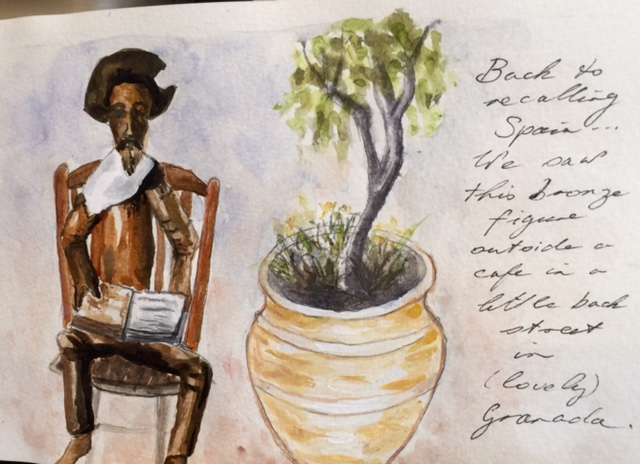 Back to
recalling
Spain...
We saw
this bronze
figure
outside a
cafe in a
little back
street
in
(lovely)
Granada.